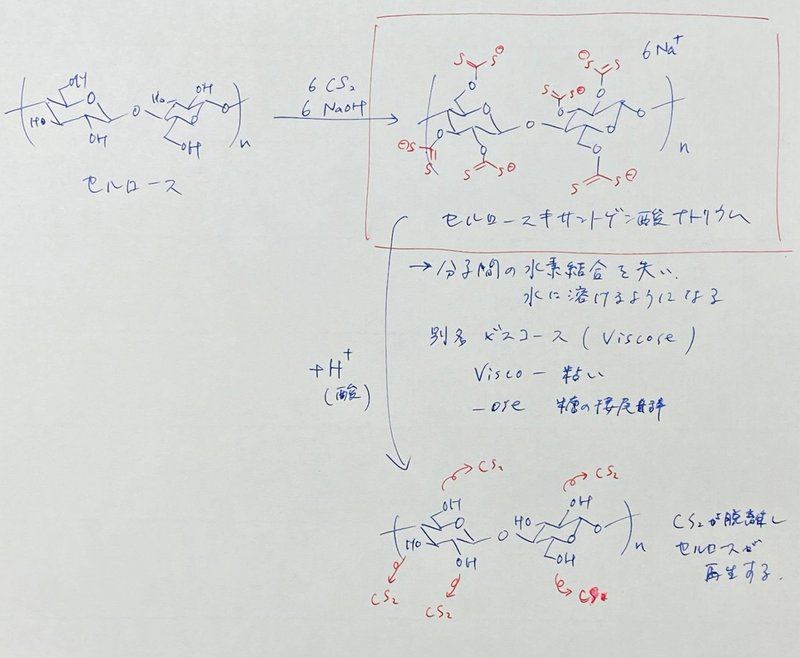 OH
HO
OH
O
O
HO
OH
O
OH
n
セルロース
6 CS2
6 NaOH
6Na+
S S⊖
S S⊖
S S⊖
⊖S S
S S⊖
S S⊖
O
O
n
セルロースキサントゲン酸ナトリウム
→分子間の水素結合を失い、
水に溶けるようになる
別名 ビスコース (Viscose)
Visco ー 粘い
ーose 糖の接尾辞
+H+
(酸)
CS2
CS2
OH
OH
HO
O
OH
O
HO
OH
O
n
CS2
CS2
CS2
CS2が脱離し
セルロースが
再生する.